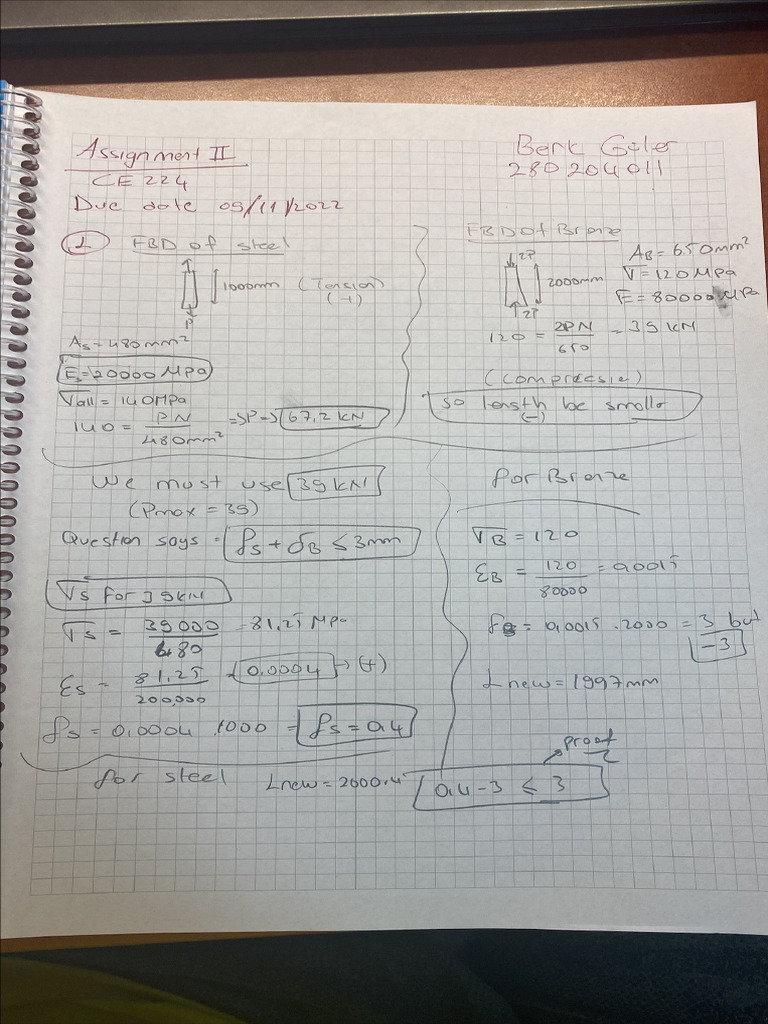 Assignment II
CE 224
Due date 09/11/2022
Berk Güler
280204011
1 FBD of steel
1000mm (Tension)
(+)
P
As = 480mm²
Es = 20000 MPa
σall = 140MPa
140 = PN / 480mm² => P => 67,2 kN
FBD of Bronze
2P
2000mm
2P
AB = 650mm²
σ = 120MPa
E = 80000 MPa
120 = 2PN / 650 = 39 kN
(compressie)
so length be smaller
(-)
We must use 39kN
(Pmax = 39)
Question says = δs + δB ≤ 3mm
σs for 39kN
σs = 39000 / 480 = 81,25 MPa
εs = 81,25 / 200,000 = 0,0004 → (+)
δs = 0,0004 . 1000 = δs = 0,4
for steel Lnew = 2000.4
for Bronze
σB = 120
εB = 120 / 80000 = 0,0015
δB = 0,0015 . 2000 = 3 but
-3
Lnew = 1997mm
proof
0,4 - 3 ≤ 3